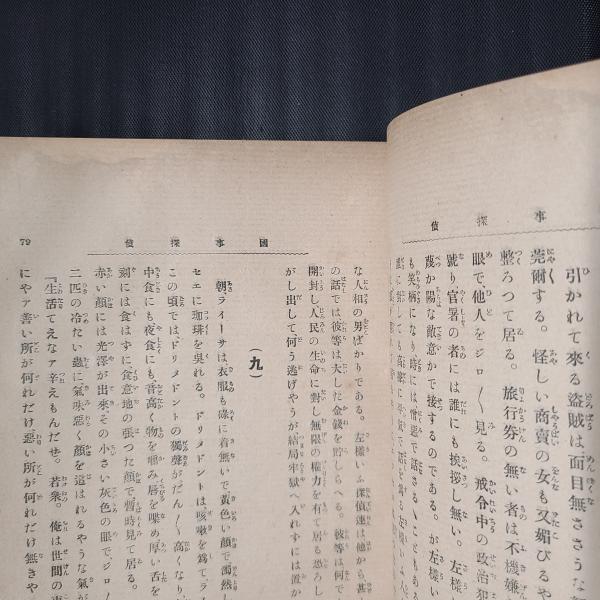 事探偵
引かれて來る盜賊は面目無ささうな
莞爾する。怪しい商賣の女も又媚びるや
整ろつて居る。旅行券の無い者は不機嫌
眼で他人をジロ〳〵見る。戒令中の政治犯
蹴り官署の者には誰にも挨拶し無い。左樣
蔑か陽な敵意かで接するのである。が左樣い
も笑柄になり時には憎惡で話さるゝこともある
國事探偵
79
な人相の男ばかりである。左樣いふ探偵連は他から甚
の話では彼等は大した金錢を貯しらへる。彼等は何で
開封し人民の生命に對し無限の權力を有て居る恐ろし
がし出して何う逃げやうが結局牢獄へ入れずには置か
(九)
朝ライーサは衣服も碌に着無いで黃色い顏で濁然
セエに珈琲を吳れる。ドリメドントは咳嗽を爲て、ラ
この頃ではドリメドントの獨聲がだん〳〵高くなり
中食にも夜食にも音高く物を嚙み唇を喋め厚い舌を
刻には食はずに食意地の張つた顏で暫時見て居る。
赤い顏には光澤が出來、その小さい灰色の眼でジロ〳〵
二匹の冷たい蟲に氣味惡く顏を這はれるやうな氣が
『生活てえなァ辛えもんだせ。若衆。俺は世間の事
にやァ善い所が何れだけ惡い所が何れだけ無きや